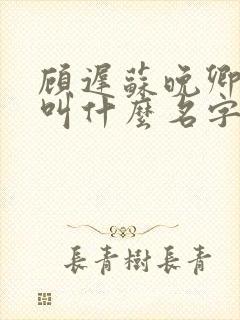 顾遲蘇晚卿
叫什麼名字
長青樹長青